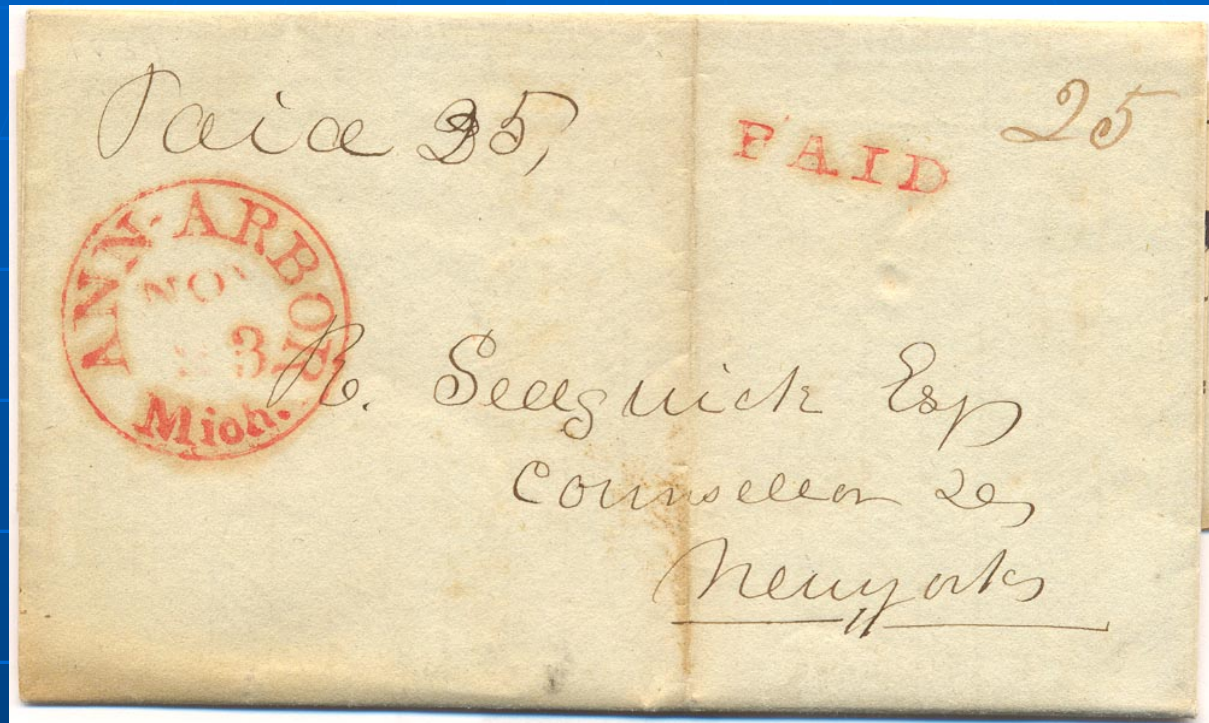 Paid 35,
PAID
25
ANN-ARBOR
NOV
3
Mich.
R. Sedgwick Esq
Counsellor &c,
New york